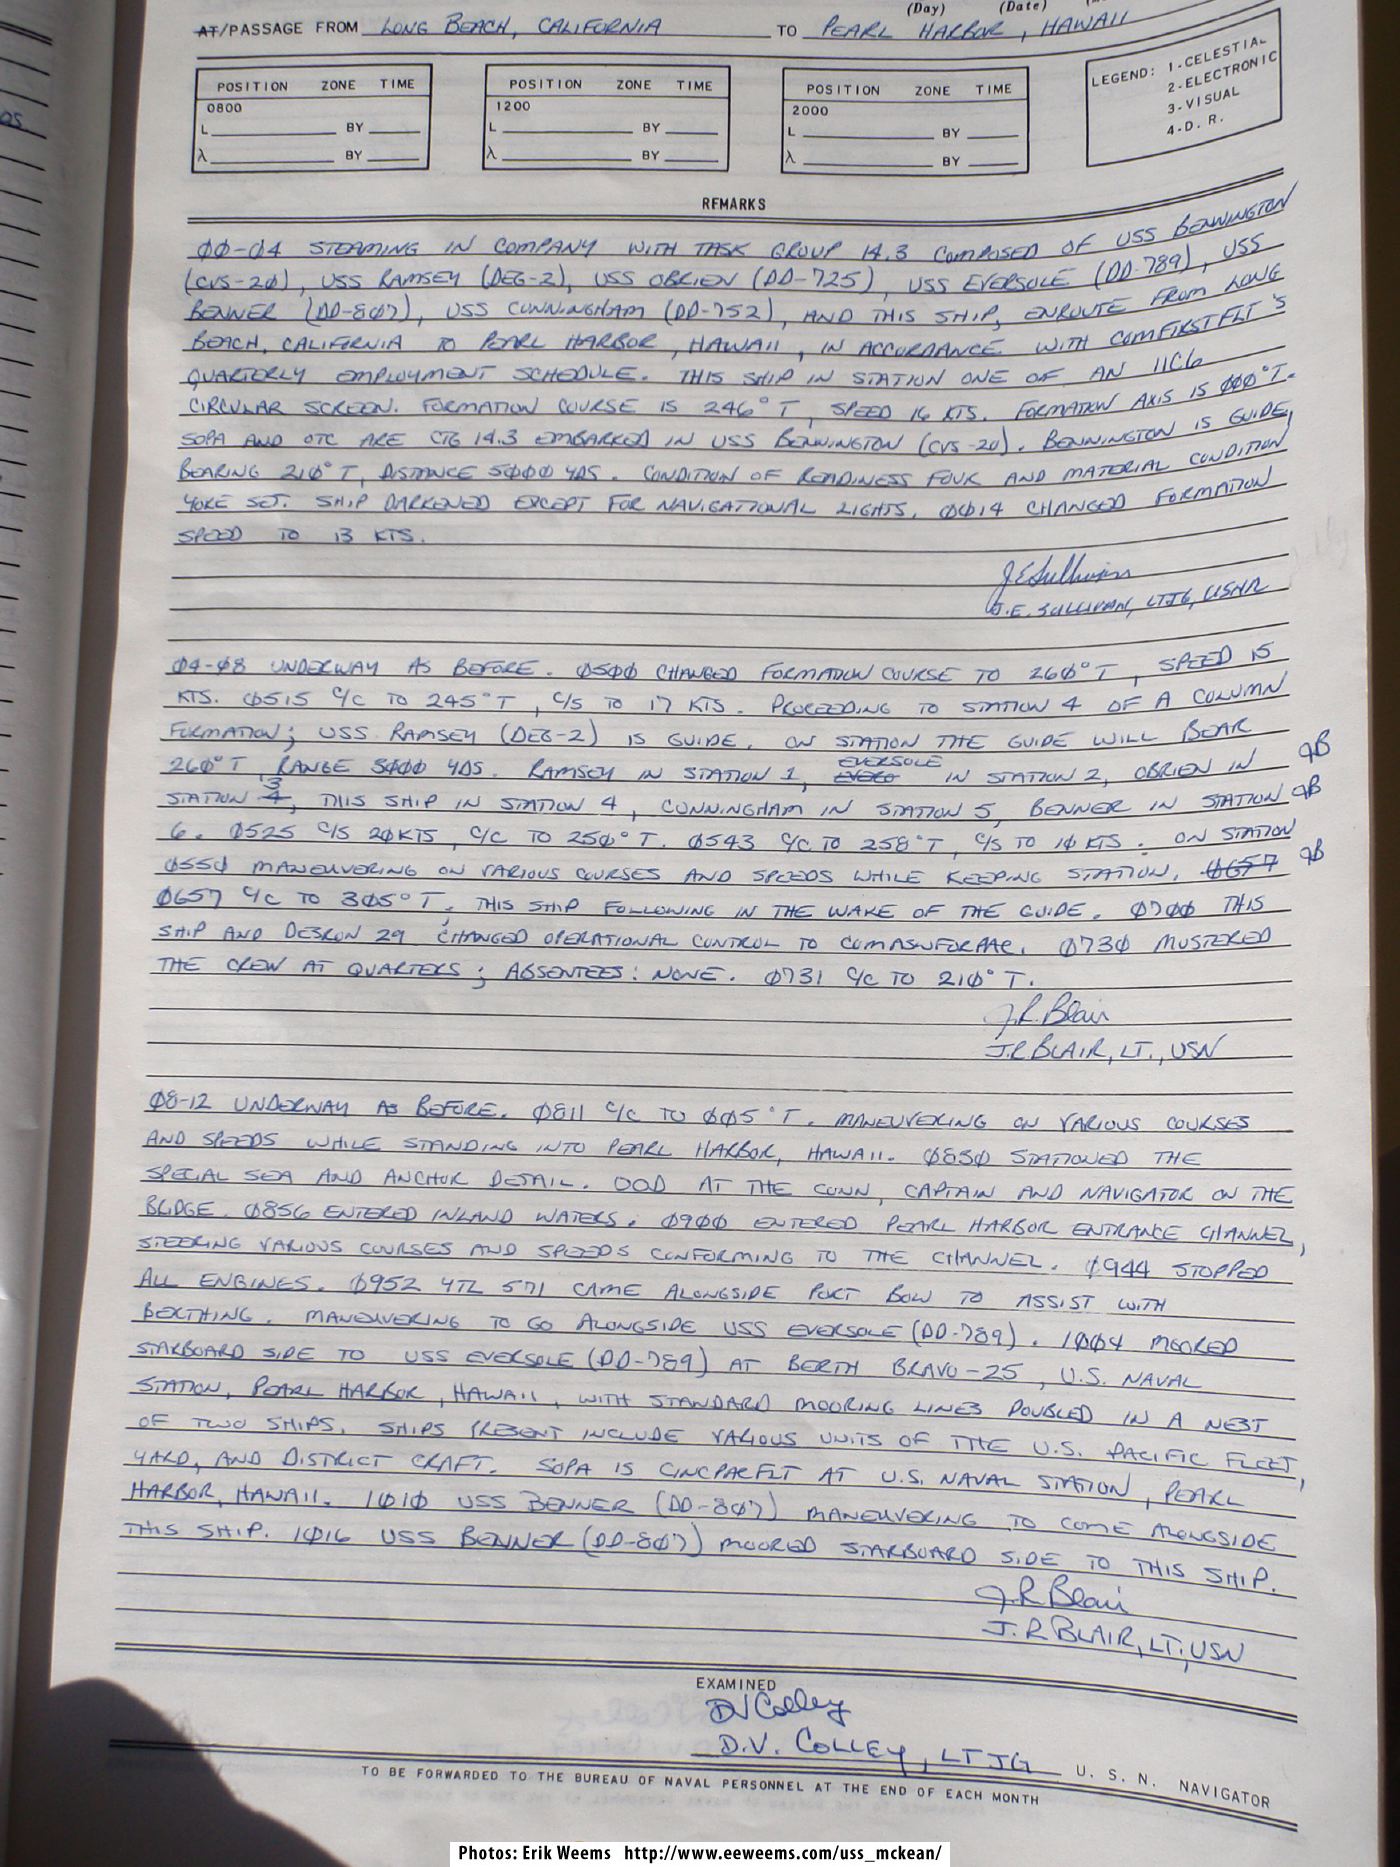 (Day) (Date)
AT/PASSAGE FROM LONG BEACH, CALIFORNIA TO PEARL HARBOR, HAWAII
POSITION ZONE TIME
0800
L BY
λ BY
POSITION ZONE TIME
1200
L BY
λ BY
POSITION ZONE TIME
2000
L BY
λ BY
LEGEND: 1-CELESTIAL
2-ELECTRONIC
3-VISUAL
4-D. R.
REMARKS
00-04 STEAMING IN COMPANY WITH TASK GROUP 14.3 COMPOSED OF USS BENNINGTON
(CVS-20), USS RAMSEY (DEG-2), USS OBRIEN (DD-725), USS EVERSOLE (DD-789), USS
BENNER (DD-807), USS CUNNINGHAM (DD-752), AND THIS SHIP, ENROUTE FROM LONG
BEACH, CALIFORNIA TO PEARL HARBOR, HAWAII, IN ACCORDANCE WITH COMFIRSTFLT'S
QUARTERLY EMPLOYMENT SCHEDULE. THIS SHIP IN STATION ONE OF AN 11C6
CIRCULAR SCREEN. FORMATION COURSE IS 246°T, SPEED 16 KTS. FORMATION AXIS IS 000°T.
SOPA AND OTC ARE CTG 14.3 EMBARKED IN USS BENNINGTON (CVS-20). BENNINGTON IS GUIDE,
BEARING 210°T, DISTANCE 5000 YDS. CONDITION OF READINESS FOUR AND MATERIAL CONDITION
YOKE SET. SHIP DARKENED EXCEPT FOR NAVIGATIONAL LIGHTS. 0014 CHANGED FORMATION
SPEED TO 13 KTS.
J E Sullivan
J.E. SULLIVAN, LTJG, USNR
04-08 UNDERWAY AS BEFORE. 0500 CHANGED FORMATION COURSE TO 260°T, SPEED 15
KTS. 0515 C/C TO 245°T, C/S TO 17 KTS. PROCEEDING TO STATION 4 OF A COLUMN
FORMATION; USS RAMSEY (DEG-2) IS GUIDE. ON STATION THE GUIDE WILL BEAR
260°T, RANGE 3000 YDS. RAMSEY IN STATION 1, EVERSOLE IN STATION 2, OBRIEN IN JB
STATION 3, THIS SHIP IN STATION 4, CUNNINGHAM IN STATION 5, BENNER IN STATION JB
6. 0525 C/S 20KTS, C/C TO 250°T. 0543 C/C TO 258°T, C/S TO 10 KTS. ON STATION
0550 MANEUVERING ON VARIOUS COURSES AND SPEEDS WHILE KEEPING STATION. 0657 JB
0657 C/C TO 305°T, THIS SHIP FOLLOWING IN THE WAKE OF THE GUIDE. 0700 THIS
SHIP AND DESRON 29 CHANGED OPERATIONAL CONTROL TO COMASWFORPAC. 0730 MUSTERED
THE CREW AT QUARTERS; ABSENTEES: NONE. 0731 C/C TO 210°T.
J.R. Blair
J.R BLAIR, LT., USN
08-12 UNDERWAY AS BEFORE. 0811 C/C TO 005°T. MANEUVERING ON VARIOUS COURSES
AND SPEEDS WHILE STANDING INTO PEARL HARBOR, HAWAII. 0850 STATIONED THE
SPECIAL SEA AND ANCHOR DETAIL. OOD AT THE CONN, CAPTAIN AND NAVIGATOR ON THE
BRIDGE. 0856 ENTERED INLAND WATERS. 0900 ENTERED PEARL HARBOR ENTRANCE CHANNEL,
STEERING VARIOUS COURSES AND SPEEDS CONFORMING TO THE CHANNEL. 0944 STOPPED
ALL ENGINES. 0952 YTL 571 CAME ALONGSIDE PORT BOW TO ASSIST WITH
BERTHING. MANEUVERING TO GO ALONGSIDE USS EVERSOLE (DD-789). 1004 MOORED
STARBOARD SIDE TO USS EVERSOLE (DD-789) AT BERTH BRAVO-25, U.S. NAVAL
STATION, PEARL HARBOR, HAWAII, WITH STANDARD MOORING LINES DOUBLED IN A NEST
OF TWO SHIPS. SHIPS PRESENT INCLUDE VARIOUS UNITS OF THE U.S. PACIFIC FLEET,
YARD, AND DISTRICT CRAFT. SOPA IS CINCPACFLT AT U.S. NAVAL STATION, PEARL
HARBOR, HAWAII. 1010 USS BENNER (DD-807) MANEUVERING TO COME ALONGSIDE
THIS SHIP. 1016 USS BENNER (DD-807) MOORED STARBOARD SIDE TO THIS SHIP.
J.R Blair
J.R BLAIR, LT, USN
EXAMINED
DV Colley
D.V. COLLEY, LTJG U. S. N. NAVIGATOR
TO BE FORWARDED TO THE BUREAU OF NAVAL PERSONNEL AT THE END OF EACH MONTH
Photos: Erik Weems http://www.eeweems.com/uss_mckean/